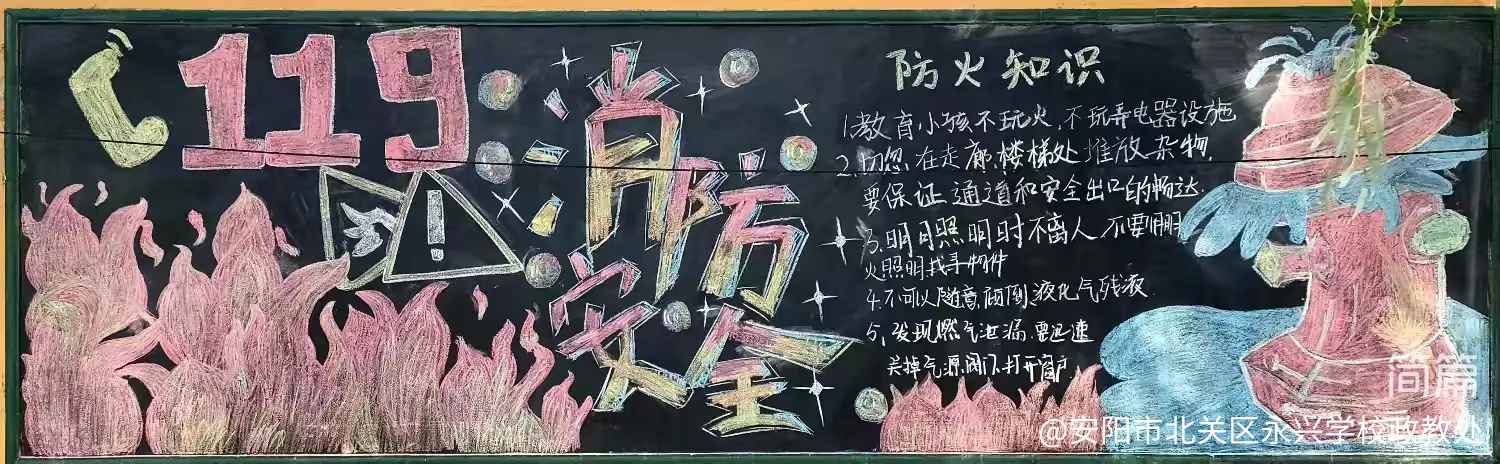 119
消防
安全
防火知识
1.教育小孩不玩火,不玩弄电器设施
2.切忽在走廊.楼梯处堆放杂物.
要保证通道和安全出口的畅达.
3.明目照明时不离人不要用
火照明找寻物件
4.不可以随意倾倒液化气残液.
5,发现燃气泄漏.要迅速
关掉气源阀门.打开窗户
简篇
@安阳市北关区永兴学校政教处